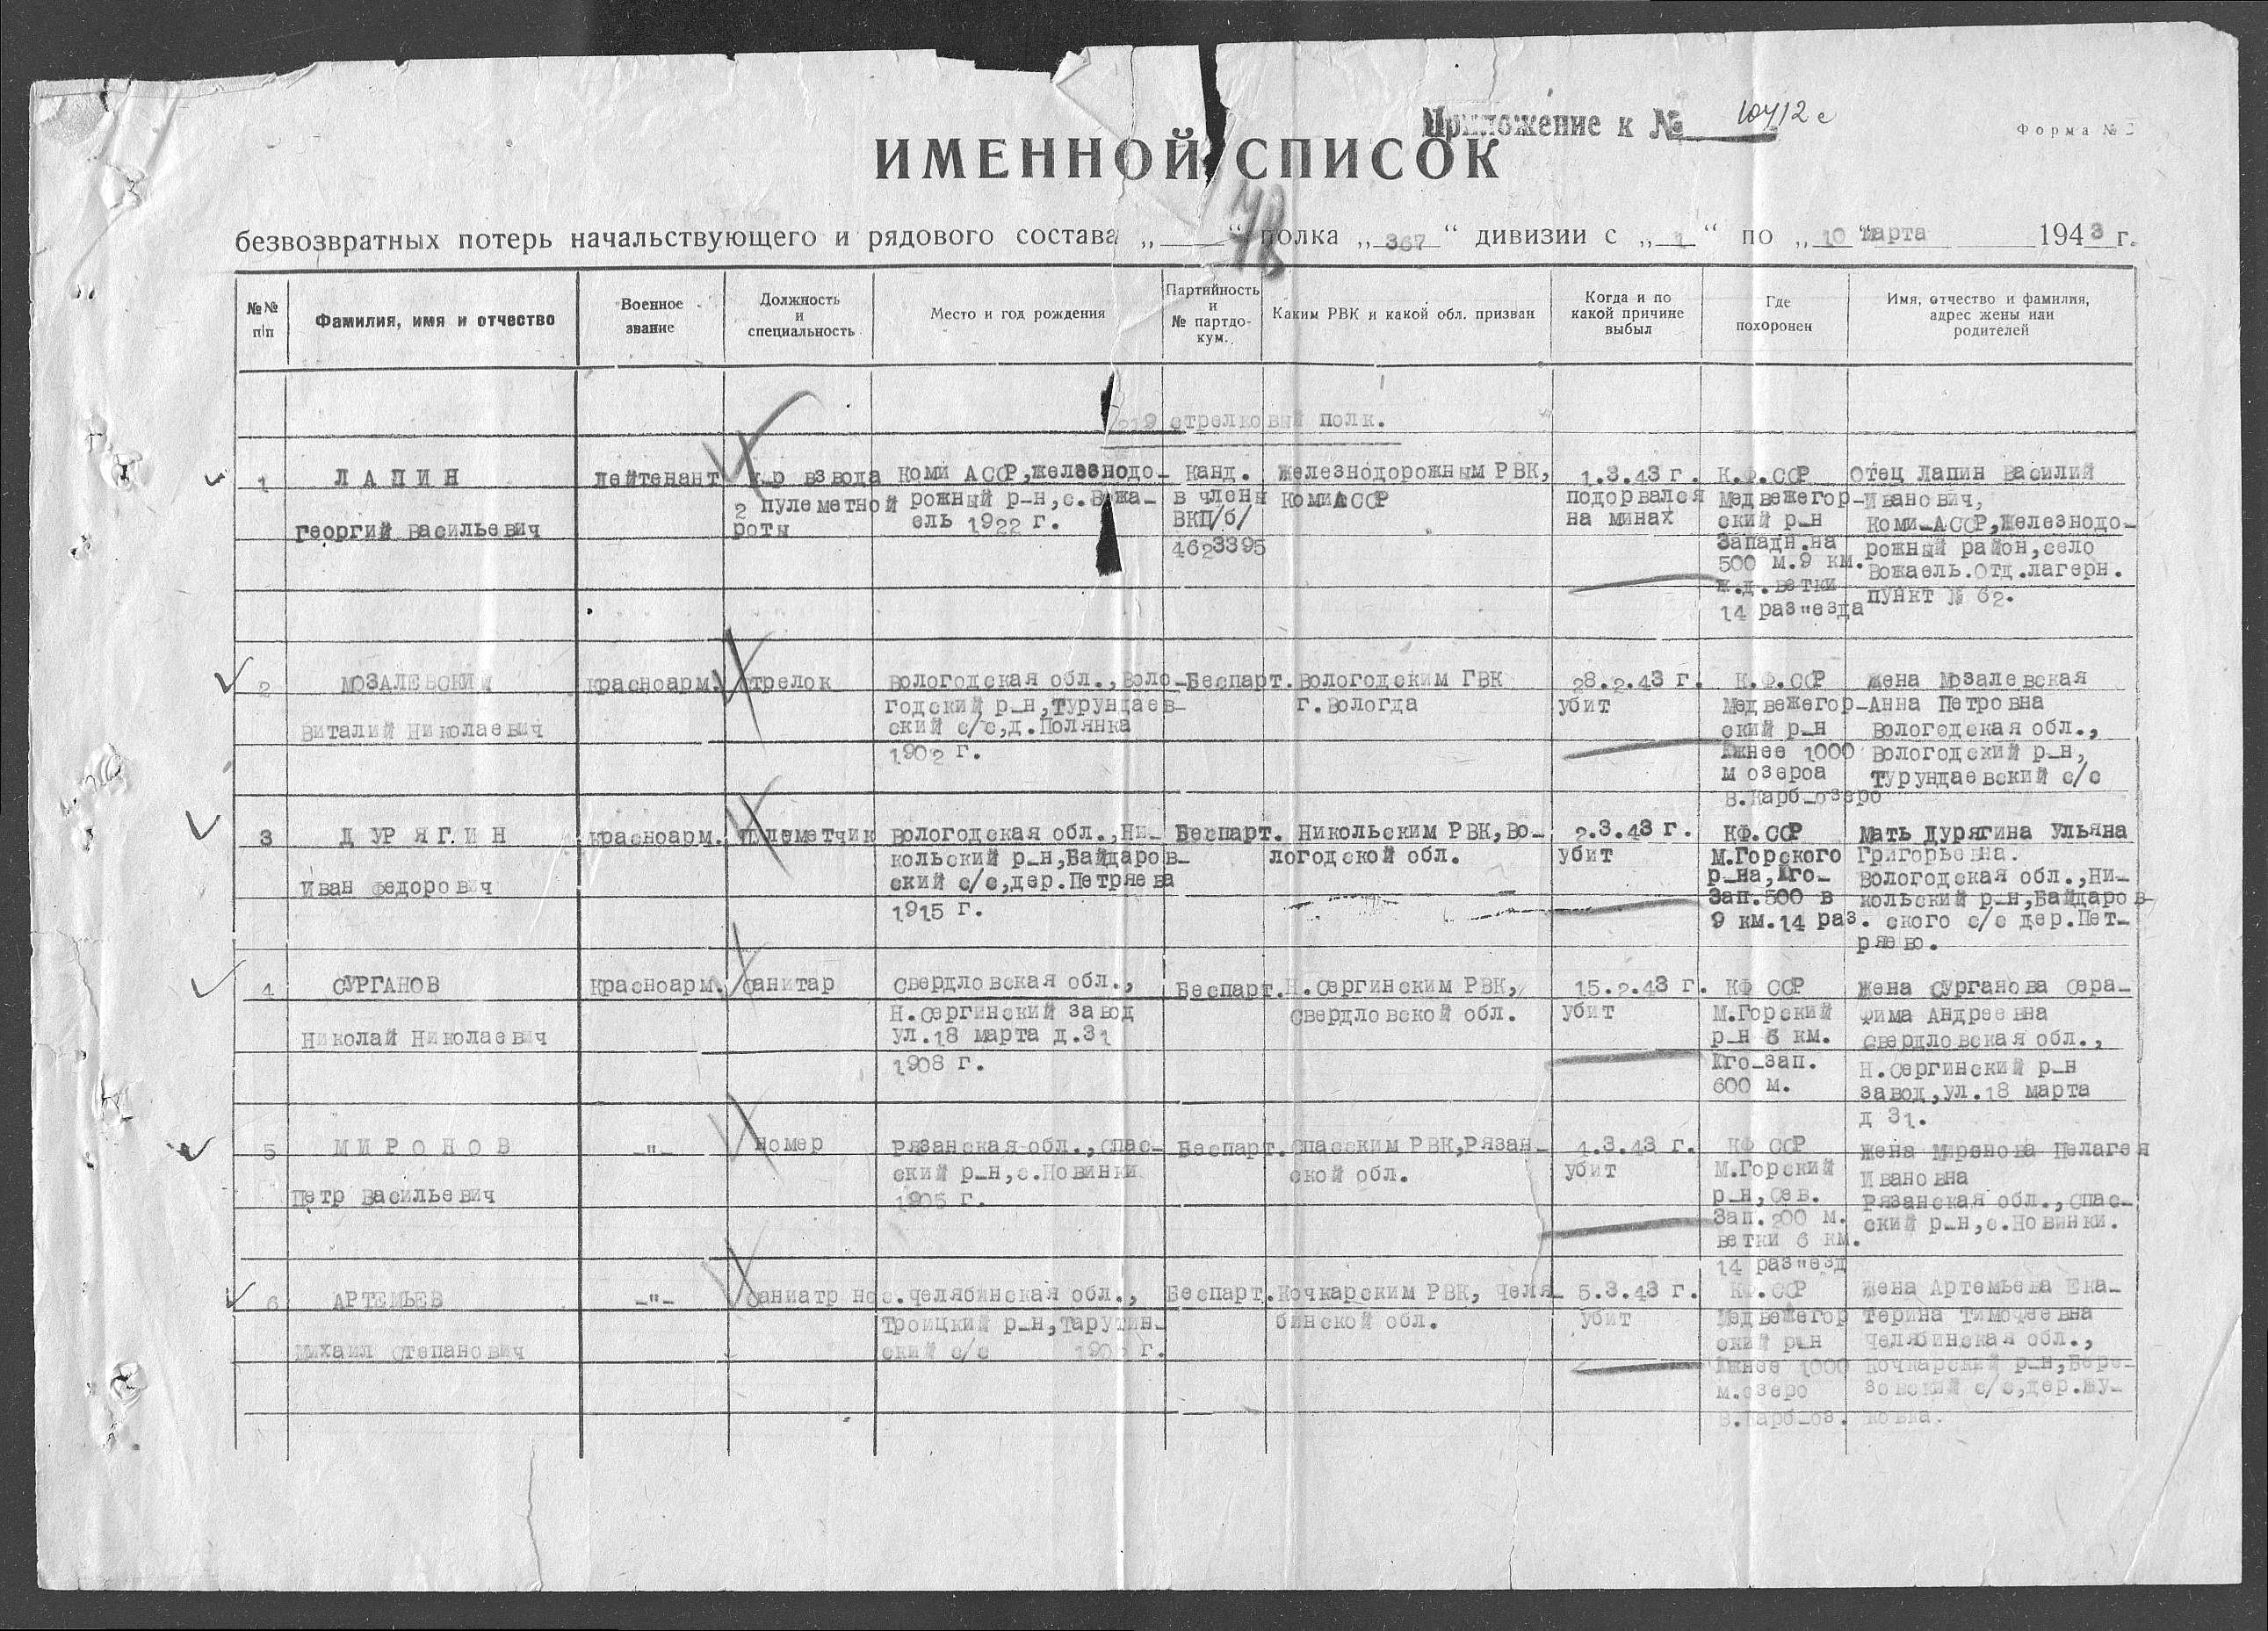 Приложение к № 10412с
Форма №
ИМЕННОЙ СПИСОК
78
безвозвратных потерь начальствующего и рядового состава „ “ полка „ 367 “ дивизии с „ 1 “ по „ 10 “ марта 1943 г.
№№ п/п
Фамилия, имя и отчество
Военное звание
Должность и специальность
Место и год рождения
Партийность и № партдокум.
Каким РВК и какой обл. призван
Когда и по какой причине выбыл
Где похоронен
Имя, отчество и фамилия, адрес жены или родителей
219 стрелковый полк.
1
ЛАПИН
Георгий Васильевич
Лейтенант
К-р взвода
2 пулеметной
роты
Коми АССР, Железнодо-
рожный р-н, с. Вожа-
ель 1922 г.
Канд.
в члены
ВКП/б/
4623395
Железнодорожным РВК,
Коми АССР
1.3.43 г.
подорвался
на минах
К.Ф.ССР
Медвежегор-
ский р-н
Западн. на
500 м. 9 км.
ж.д. ветки
14 разъезда
Отец Лапин Василий
Иванович,
Коми-АССР, Железнодо-
рожный район, село
Вожаель. Отд. лагерн.
пункт № 62.
2
МОЗАЛЕВСКИЙ
Виталий Николаевич
Красноарм.
Стрелок
Вологодская обл., Воло-
годский р-н, Турундаев-
ский с/с, д. Полянка
1902 г.
Беспарт.
Вологодским ГВК
г. Вологда
28.2.43 г.
убит
К.Ф.ССР
Медвежегор-
ский р-н
Южнее 1000
м озероа
В. Карб-озеро
Жена Мозалевская
Анна Петровна
Вологодская обл.,
Вологодский р-н,
Турундаевский с/с
3
ДУРЯГИН
Иван Федорович
Красноарм.
Пулеметчик
Вологодская обл., Ни-
кольский р-н, Байдаров-
ский с/с, дер. Петряева
1915 г.
Беспарт.
Никольским РВК, Во-
логодской обл.
2.3.43 г.
убит
КФ.ССР
М.Горского
р-на, Юго-
Зап. 500 в
9 км. 14 раз.
Мать Дурягина Ульяна
Григорьевна.
Вологодская обл., Ни-
кольский р-н, Байдаров-
ского с/с дер. Пет-
ряево.
4
СУРГАНОВ
Николай Николаевич
Красноарм.
Санитар
Свердловская обл.,
Н.Сергинский завод
ул. 18 марта д. 31
1908 г.
Беспарт.
Н.Сергинским РВК,
Свердловской обл.
15.2.43 г.
убит
КФ ССР
М.Горский
р-н 6 км.
Юго-зап.
600 м.
Жена Сурганова Сера-
фима Андреевна
Свердловская обл.,
Н.Сергинский р-н
завод, ул. 18 марта
д 31.
5
МИРОНОВ
Петр Васильевич
-"-
Номер
Рязанская обл., Спас-
ский р-н, с. Новинки
1905 г.
Беспарт.
Спасским РВК, Рязан-
ской обл.
4.3.43 г.
убит
КФ ССР
М.Горский
р-н, Сев.
Зап. 200 м.
ветки 6 км.
14 разъезд
Жена Миронова Пелагея
Ивановна
Рязанская обл., Спас-
ский р-н, с. Новинки.
6
АРТЕМЬЕВ
Михаил Степанович
-"-
Саниатр нос.
Челябинская обл.,
Троицкий р-н, Тарутин-
ский с/с г.
Беспарт.
Кочкарским РВК, Челя-
бинской обл.
5.3.43 г.
убит
КФ.ССР
Медвежегор
ский р-н
Южнее 1000
м. озеро
В. Карб-оз.
Жена Артемьева Ека-
терина Тимофеевна
Челябинская обл.,
Кочкарский р-н, Бере-
зовский с/с, дер. Жу-
ковка.